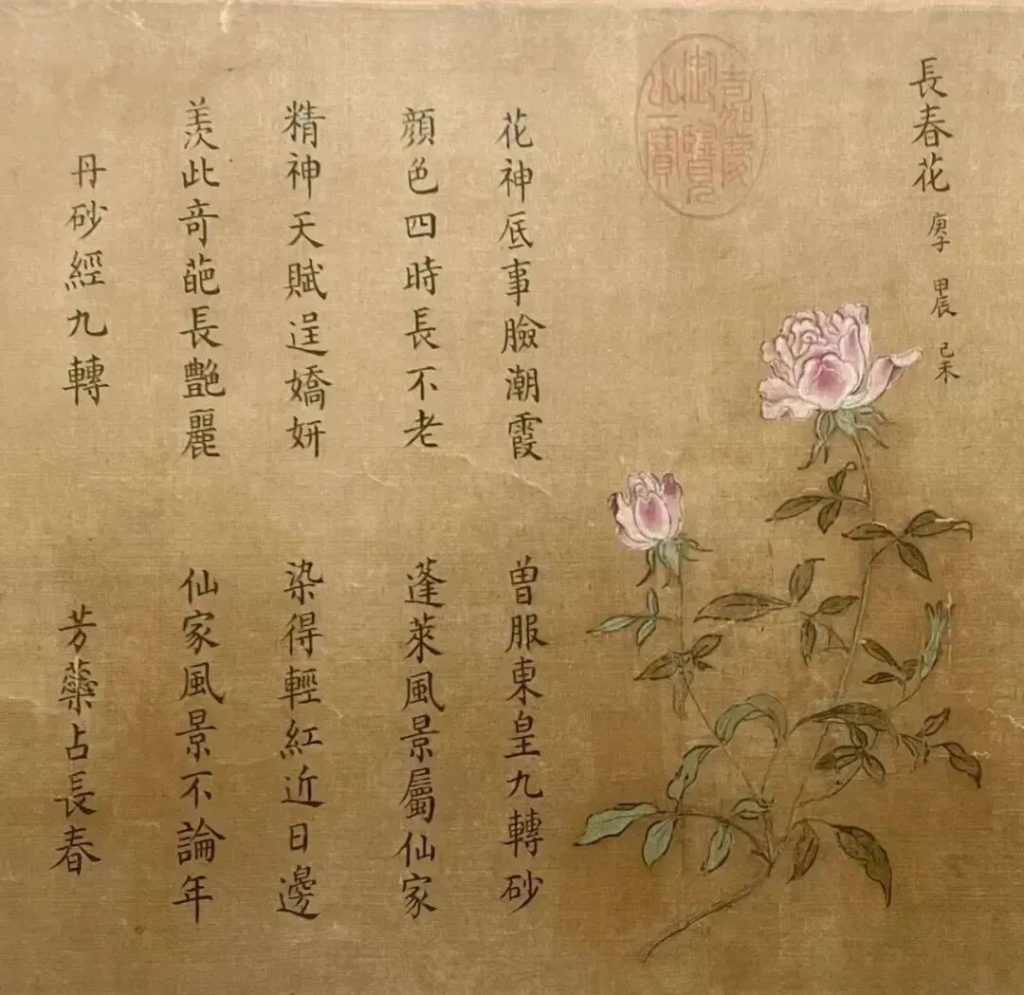 長春花 庚子 甲辰 己未
嘉慶御覽之寶
花神底事臉潮霞 曾服東皇九轉砂
顔色四時長不老 蓬萊風景屬仙家
精神天賦逞嬌妍 染得輕紅近日邊
羨此奇葩長艷麗 仙家風景不論年
丹砂經九轉 芳蘂占長春